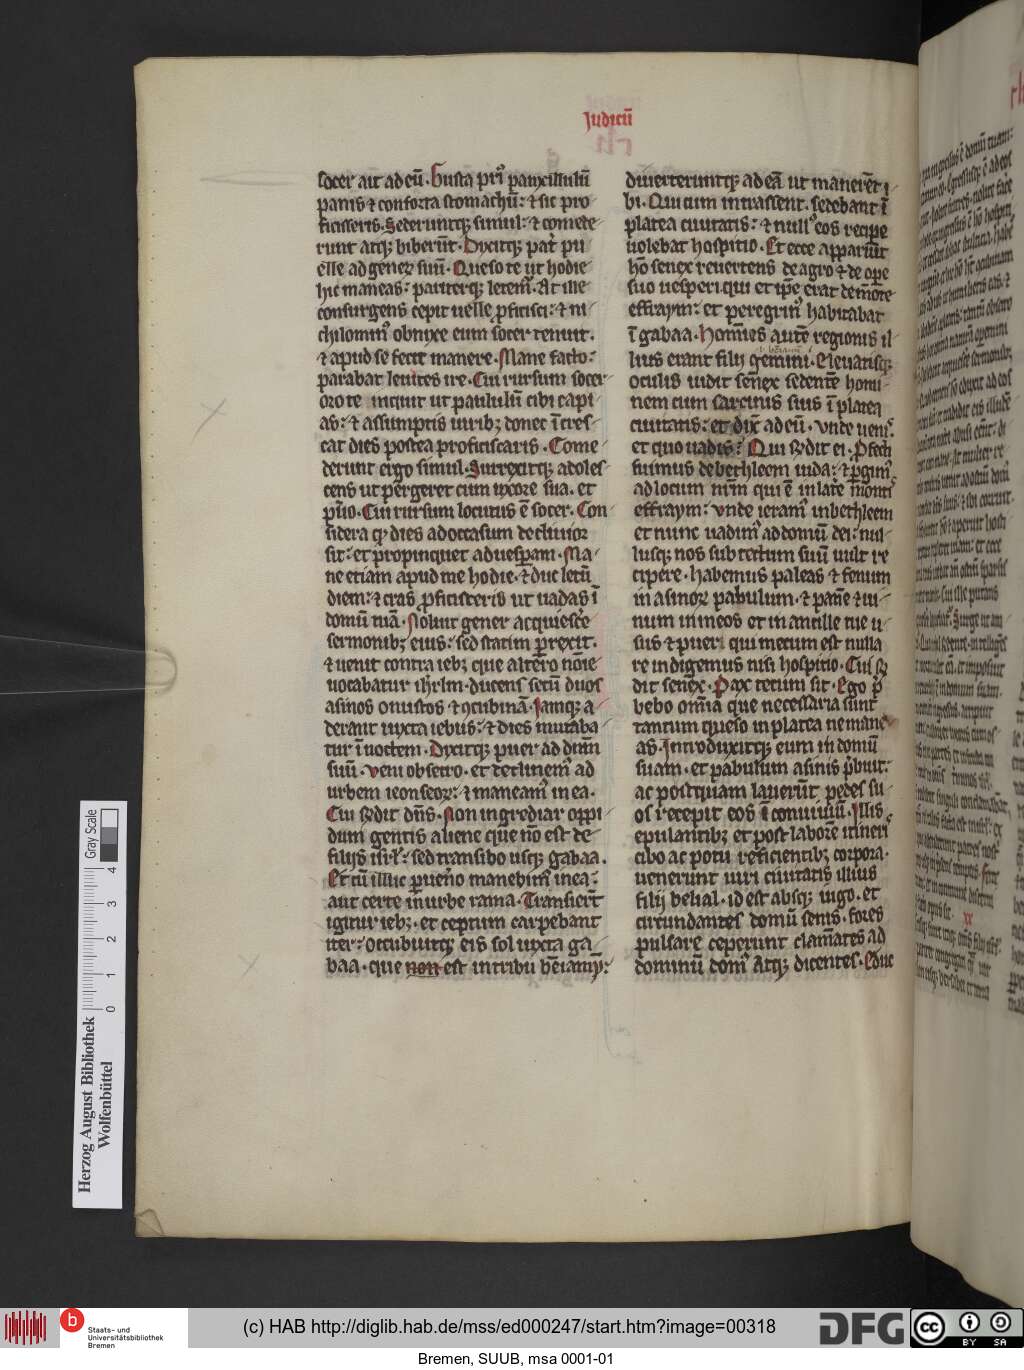 Iudicū
socer ait ad eū. Gusta pri᷒ pauxillulū
panis ⁊ conforta stomachū: ⁊ sic pro
ficisceris. Sederuntqꝫ simul: ⁊ comede
runt atqꝫ biberūt. Dixitqꝫ pat̄ pu
elle ad generꝫ suū. Queso te ut hodie
hic maneas: pariterqꝫ letem᷒. At ille
consurgens cepit uelle ꝓficisci: ⁊ ni
chilomin᷒ obnixe eum socer tenuit.
⁊ apud se fecit manere. Mane facto:
parabat leuites ire. Cui rursum socer
oro te inquit ut paululū cibi capi
as: ⁊ assumptis uiribꝫ donec īcres
cat dies postea proficiscaris. Come
derunt ergo simul. Surrexitqꝫ adoles
cens ut pergeret cum uxore sua. et
pūo. Cui rursum locutus ē socer. Con
sidera ꝙ dies ad occasum decliuior
sit: et propinquet ad uesꝑam. Ma
ne etiam apud me hodie. ⁊ duc letū
diem: ⁊ cras ꝓficisceris ut uadas ī
domū tuā. Noluit gener acquiesc̄e
sermonibꝫ eius: sed statim ꝑrexit.
⁊ uenit contra iebꝫ que altero nōıe
uocabatur ihrlm. ducens secū duos
asinos onustos ⁊ ꝯcubinā. Iamqꝫ a
derant iuxta iebus: ⁊ dies mutaba
tur ī noctem. Dixitqꝫ puer ad dnm
suū. Veni obsecro. et declinem᷒ ad
urbem ieonseoꝝ: ⁊ maneam᷒ in ea.
Cui r̄ndit dn̄s. Non ingrediar oppi
dum gentis aliene que nō est de
filijs isr̄l: sed transibo usqꝫ gabaa.
Et cū illuc ꝑuen̄o manebim᷒ in ea:
aut certe in urbe rama. Transier̄t
igitur iebꝫ. et ceptum carpebant
iter: Occubuitqꝫ eis sol iuxta ga
baa. que non est in tribu beniamȳ:
diuerteruntqꝫ ad eā ut manerēt i
bi. Qui cum intrassent. sedebant ī
platea ciuitatis: ⁊ null᷒ eos recipe
uolebat hospitio. Et ecce apparuit
hō senex reuertens de agro ⁊ de oꝑe
suo uesperi. qui et ip̄e erat de mōte
effraym: et peregrin᷒ habitabat
ī gabaa. Homīes autē regionis il
lius erant filij gemini. Eleuatisqꝫ
oculis uidit senex sedentē homi
nem cum sarcinis suis ī platea
ciuitatis: et dix̄ ad eū. Vnde uenis.
et quo uadis? Qui r̄ndit ei. Pfecti
sumus de bethleem iuda: ⁊ ꝑgim᷒
ad locum nr̄m qui ē in latere monti
effraym: vnde ieram᷒ in bethleem
et nunc uadim᷒ ad domū dei: nul
lusqꝫ nos sub tectum suū uult re
cipere. habemus paleas ⁊ fenum
in asinoꝝ pabulum. ⁊ panē ⁊ ui
num in meos et in ancille tue u
sus ⁊ pueri qui mecum est nulla
re indigemus nisi hospitio. Cui r̄n
dit senex. Pax tecum sit. Ego p̄
bebo omīa que necessaria sunt
tantum queso in platea ne mane
as. Introduxitqꝫ eum in domū
suam. et pabulum asinis p̄buit:
ac postquam lauerūt pedes su
os recepit eos ī conuiuiū. Illis
epulantibꝫ et post laborē itineri
cibo ac potu reficientibꝫ corpora.
uenerunt uiri ciuitatis illius
filij belial. id est absqꝫ iugo. et
circumdantes domū senis. fores
pulsare ceperunt clamātes ad
dominū dom᷒ atqꝫ dicentes. Educ
Herzog August Bibliothek
Wolfenbüttel
Gray Scale
0 1 2 3 4
Staats- und
Universitätsbibliothek
Bremen
(c) HAB http://diglib.hab.de/mss/ed000247/start.htm?image=00318
DFG
cc
BY SA
Bremen, SUUB, msa 0001-01